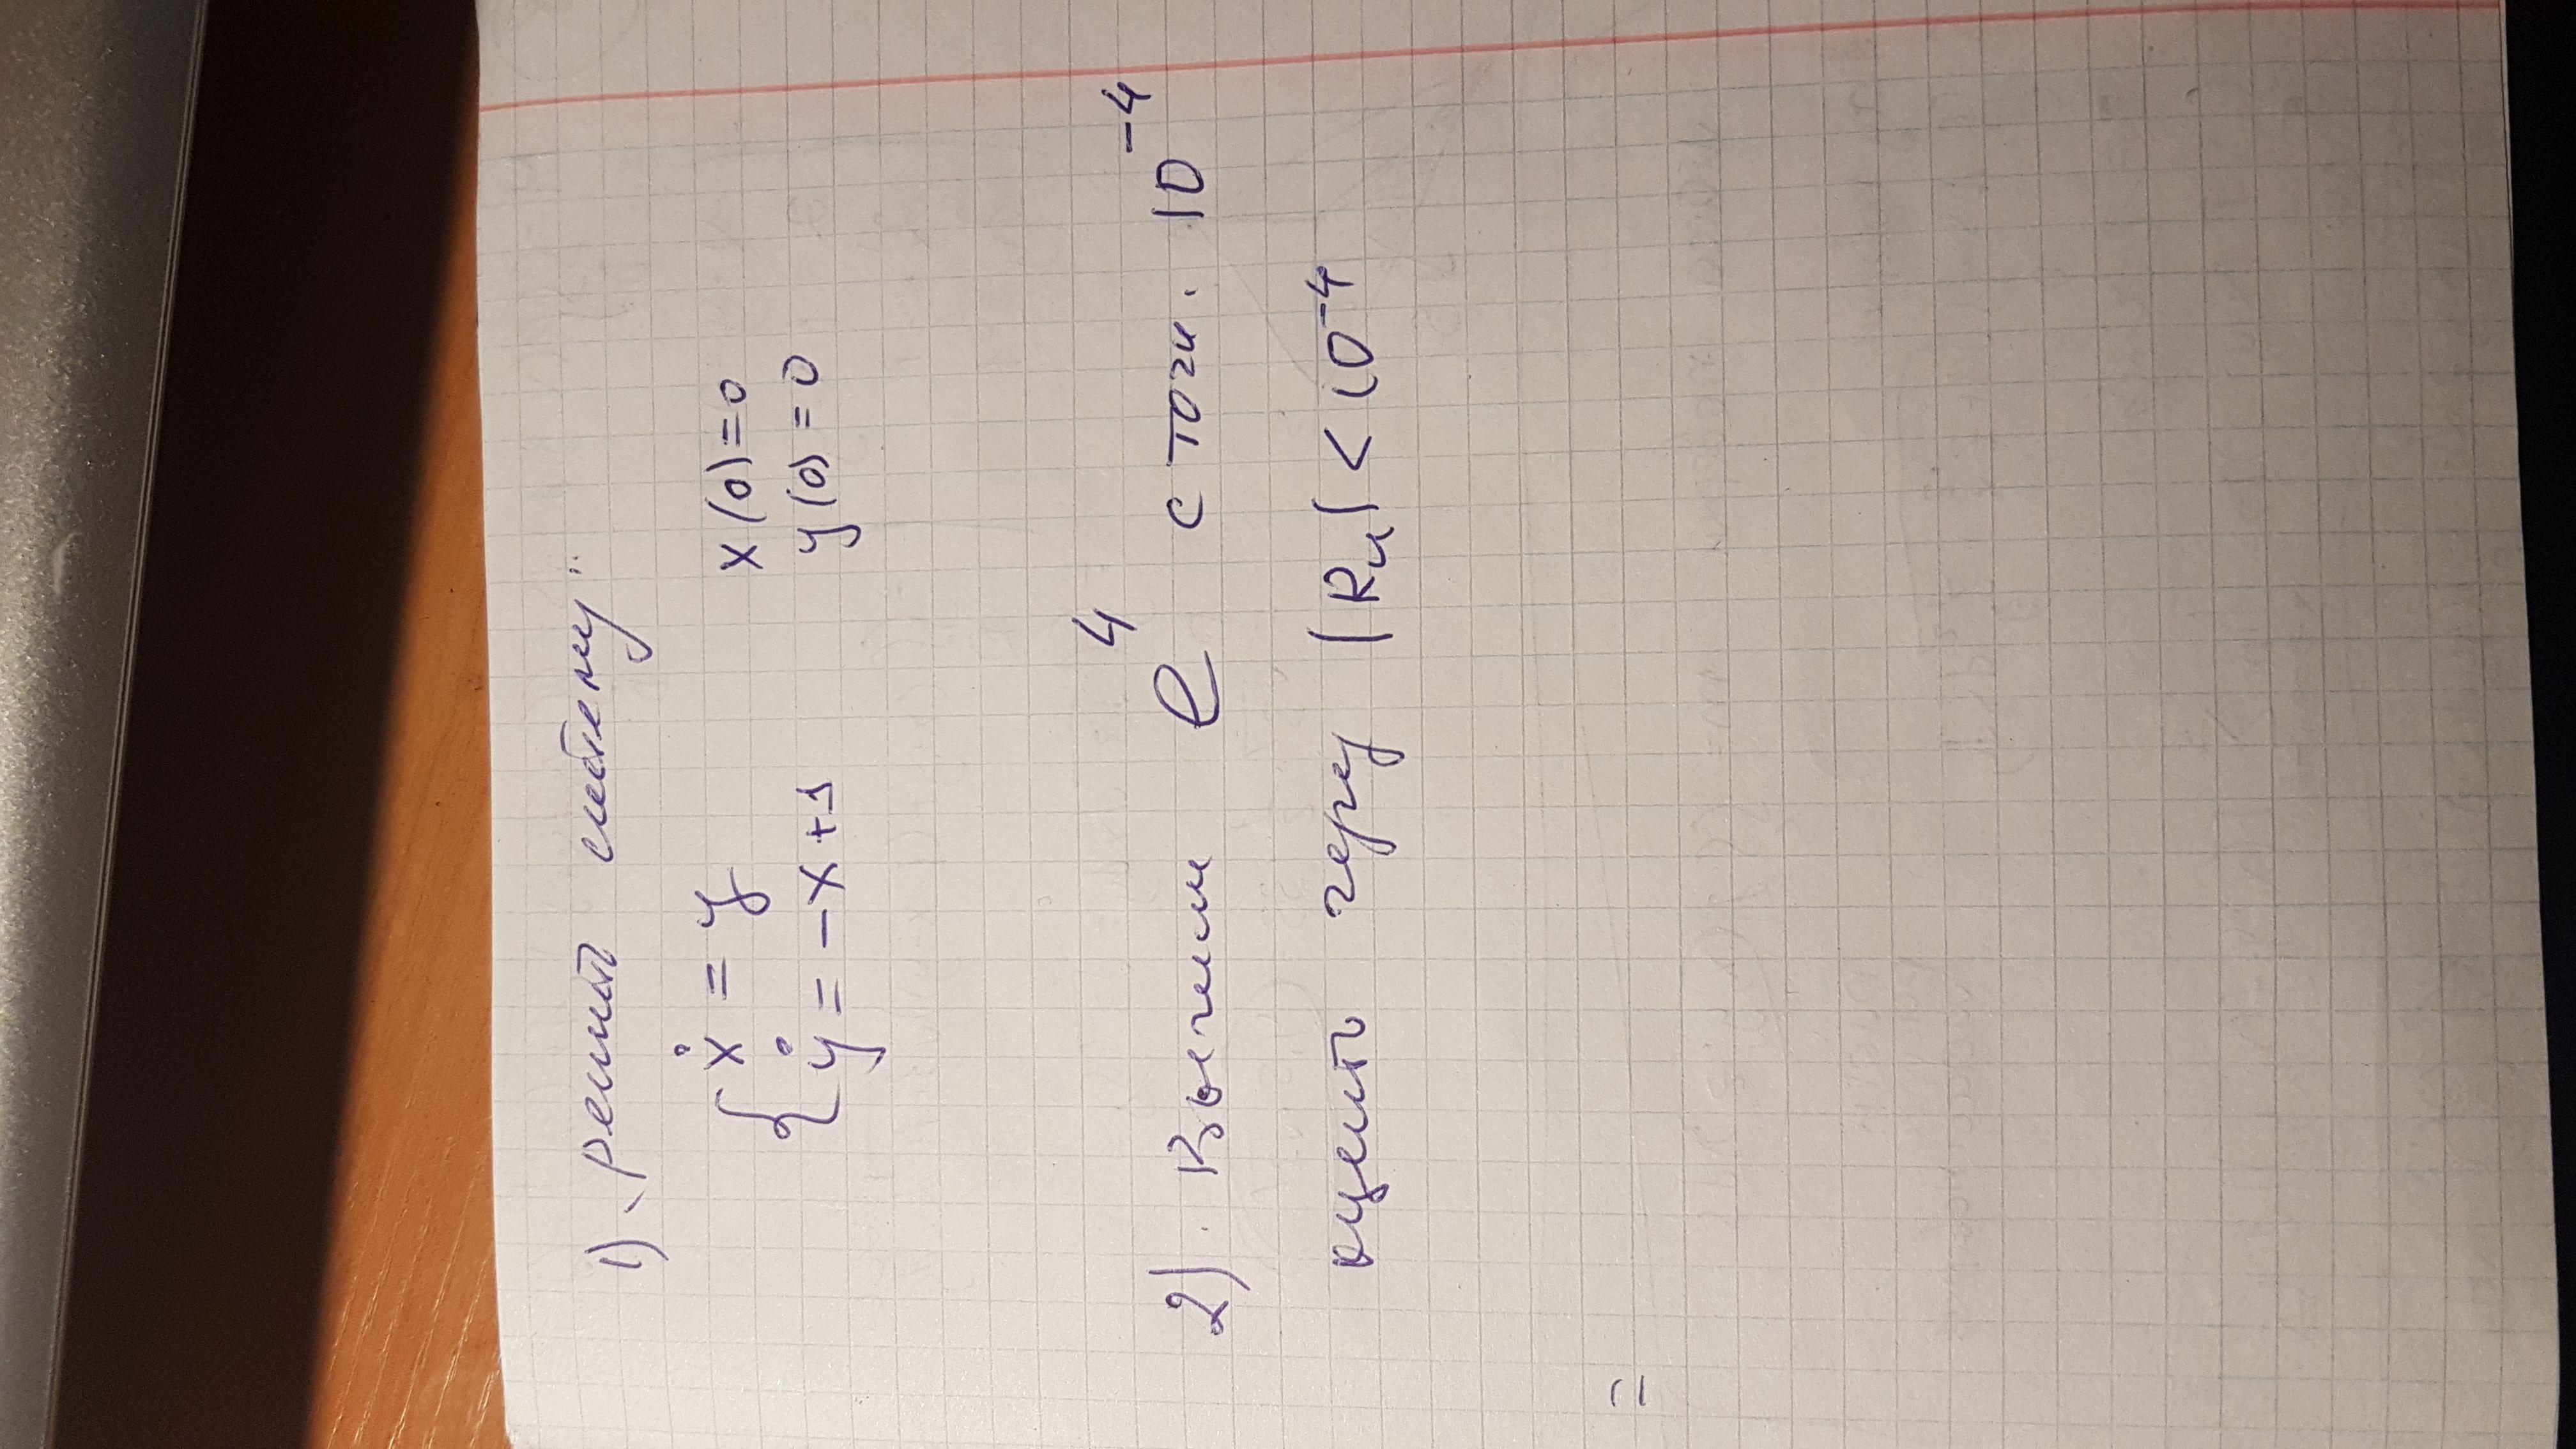 1) решить систему:
{ ẋ = y x(0)=0
ẏ = -x+1 y(0)=0
2). Вычислить e⁴ с точн. 10⁻⁴
оценить через |Rn| < 10⁻⁴
=